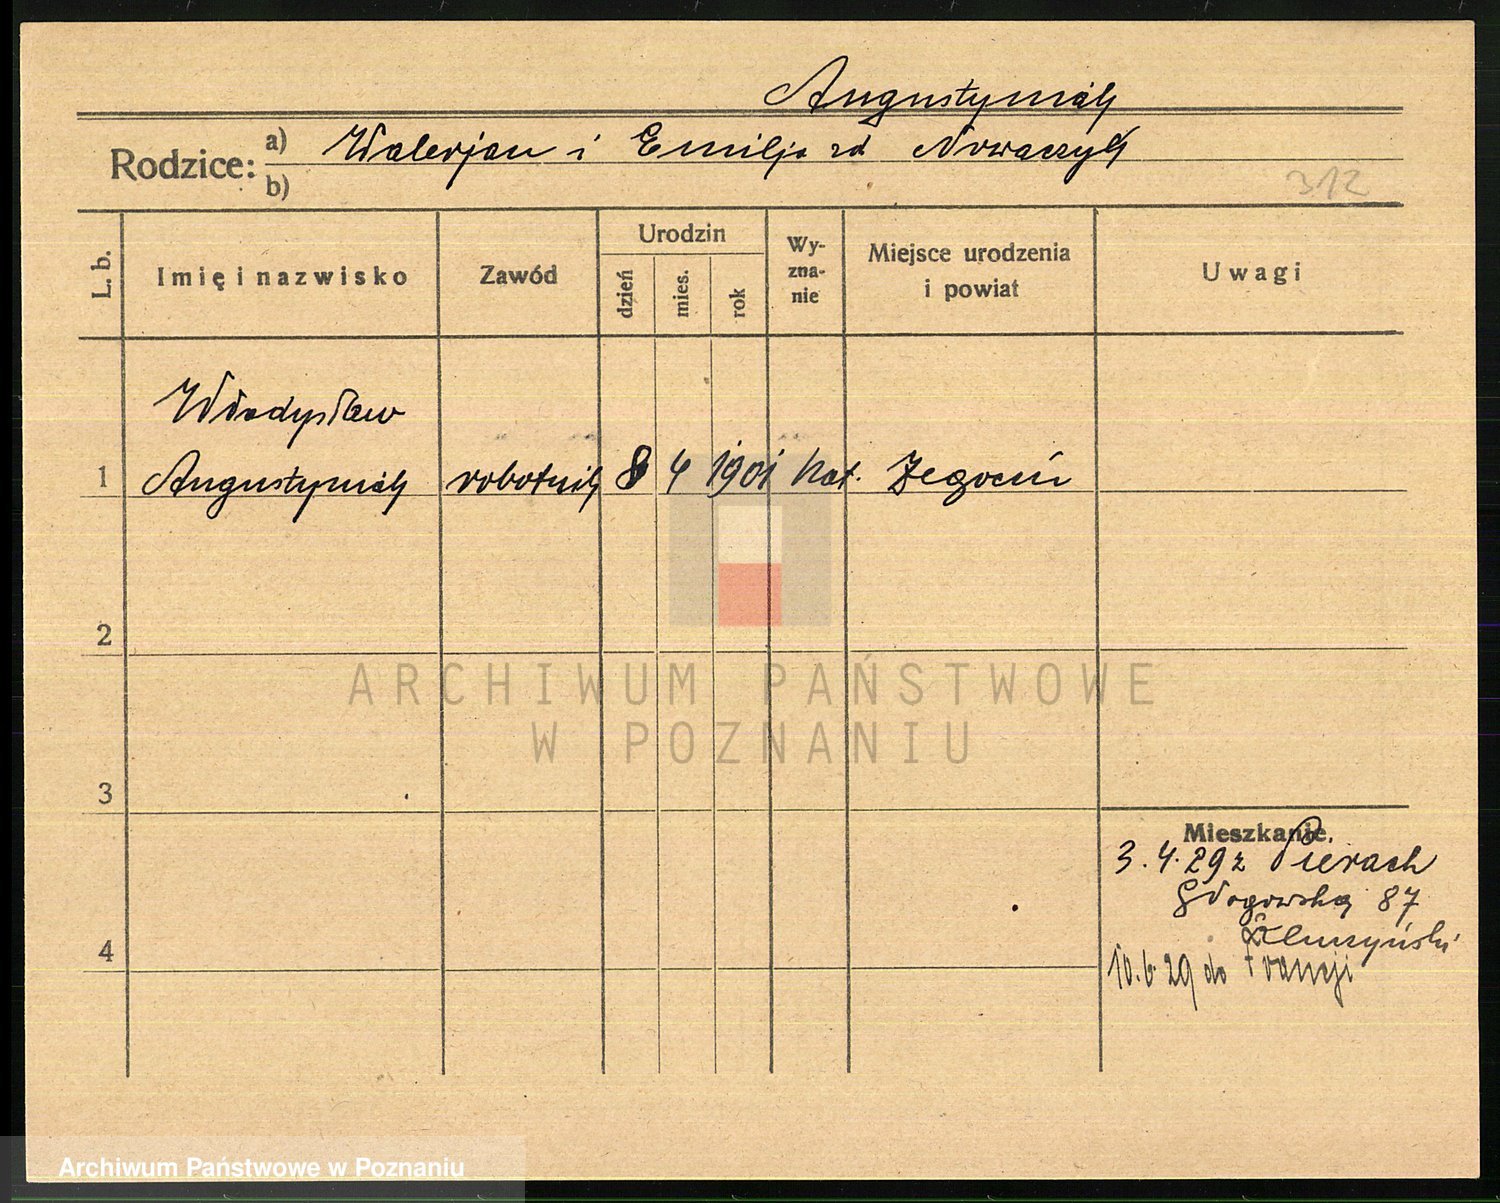 Augustyniak
Rodzice: a) Walerjan i Emilja zd Nowaczyk
b)
312
L. b.
Imię i nazwisko
Zawód
Urodzin
dzień
mies.
rok
Wy-
zna-
nie
Miejsce urodzenia
i powiat
Uwagi
Władysław
1 Augustyniak robotnik 8 4 1901 kat. Żegocin
2
ARCHIWUM PAŃSTWOWE
W POZNANIU
3
Mieszkanie.
3.4.29 z Pierach
Głogowska 87
4
10.6.29 do Francji
Archiwum Państwowe w Poznaniu